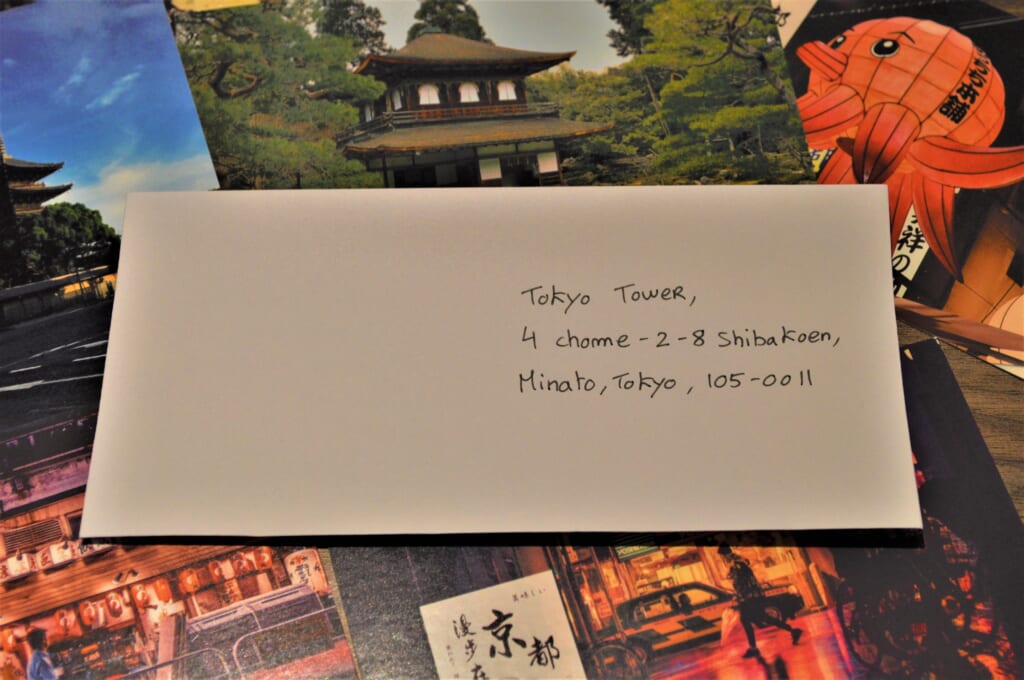 Tokyo Tower,
4 chome-2-8 Shibakoen,
Minato, Tokyo, 105-0011
美味しい
京都
漫歩
祥の